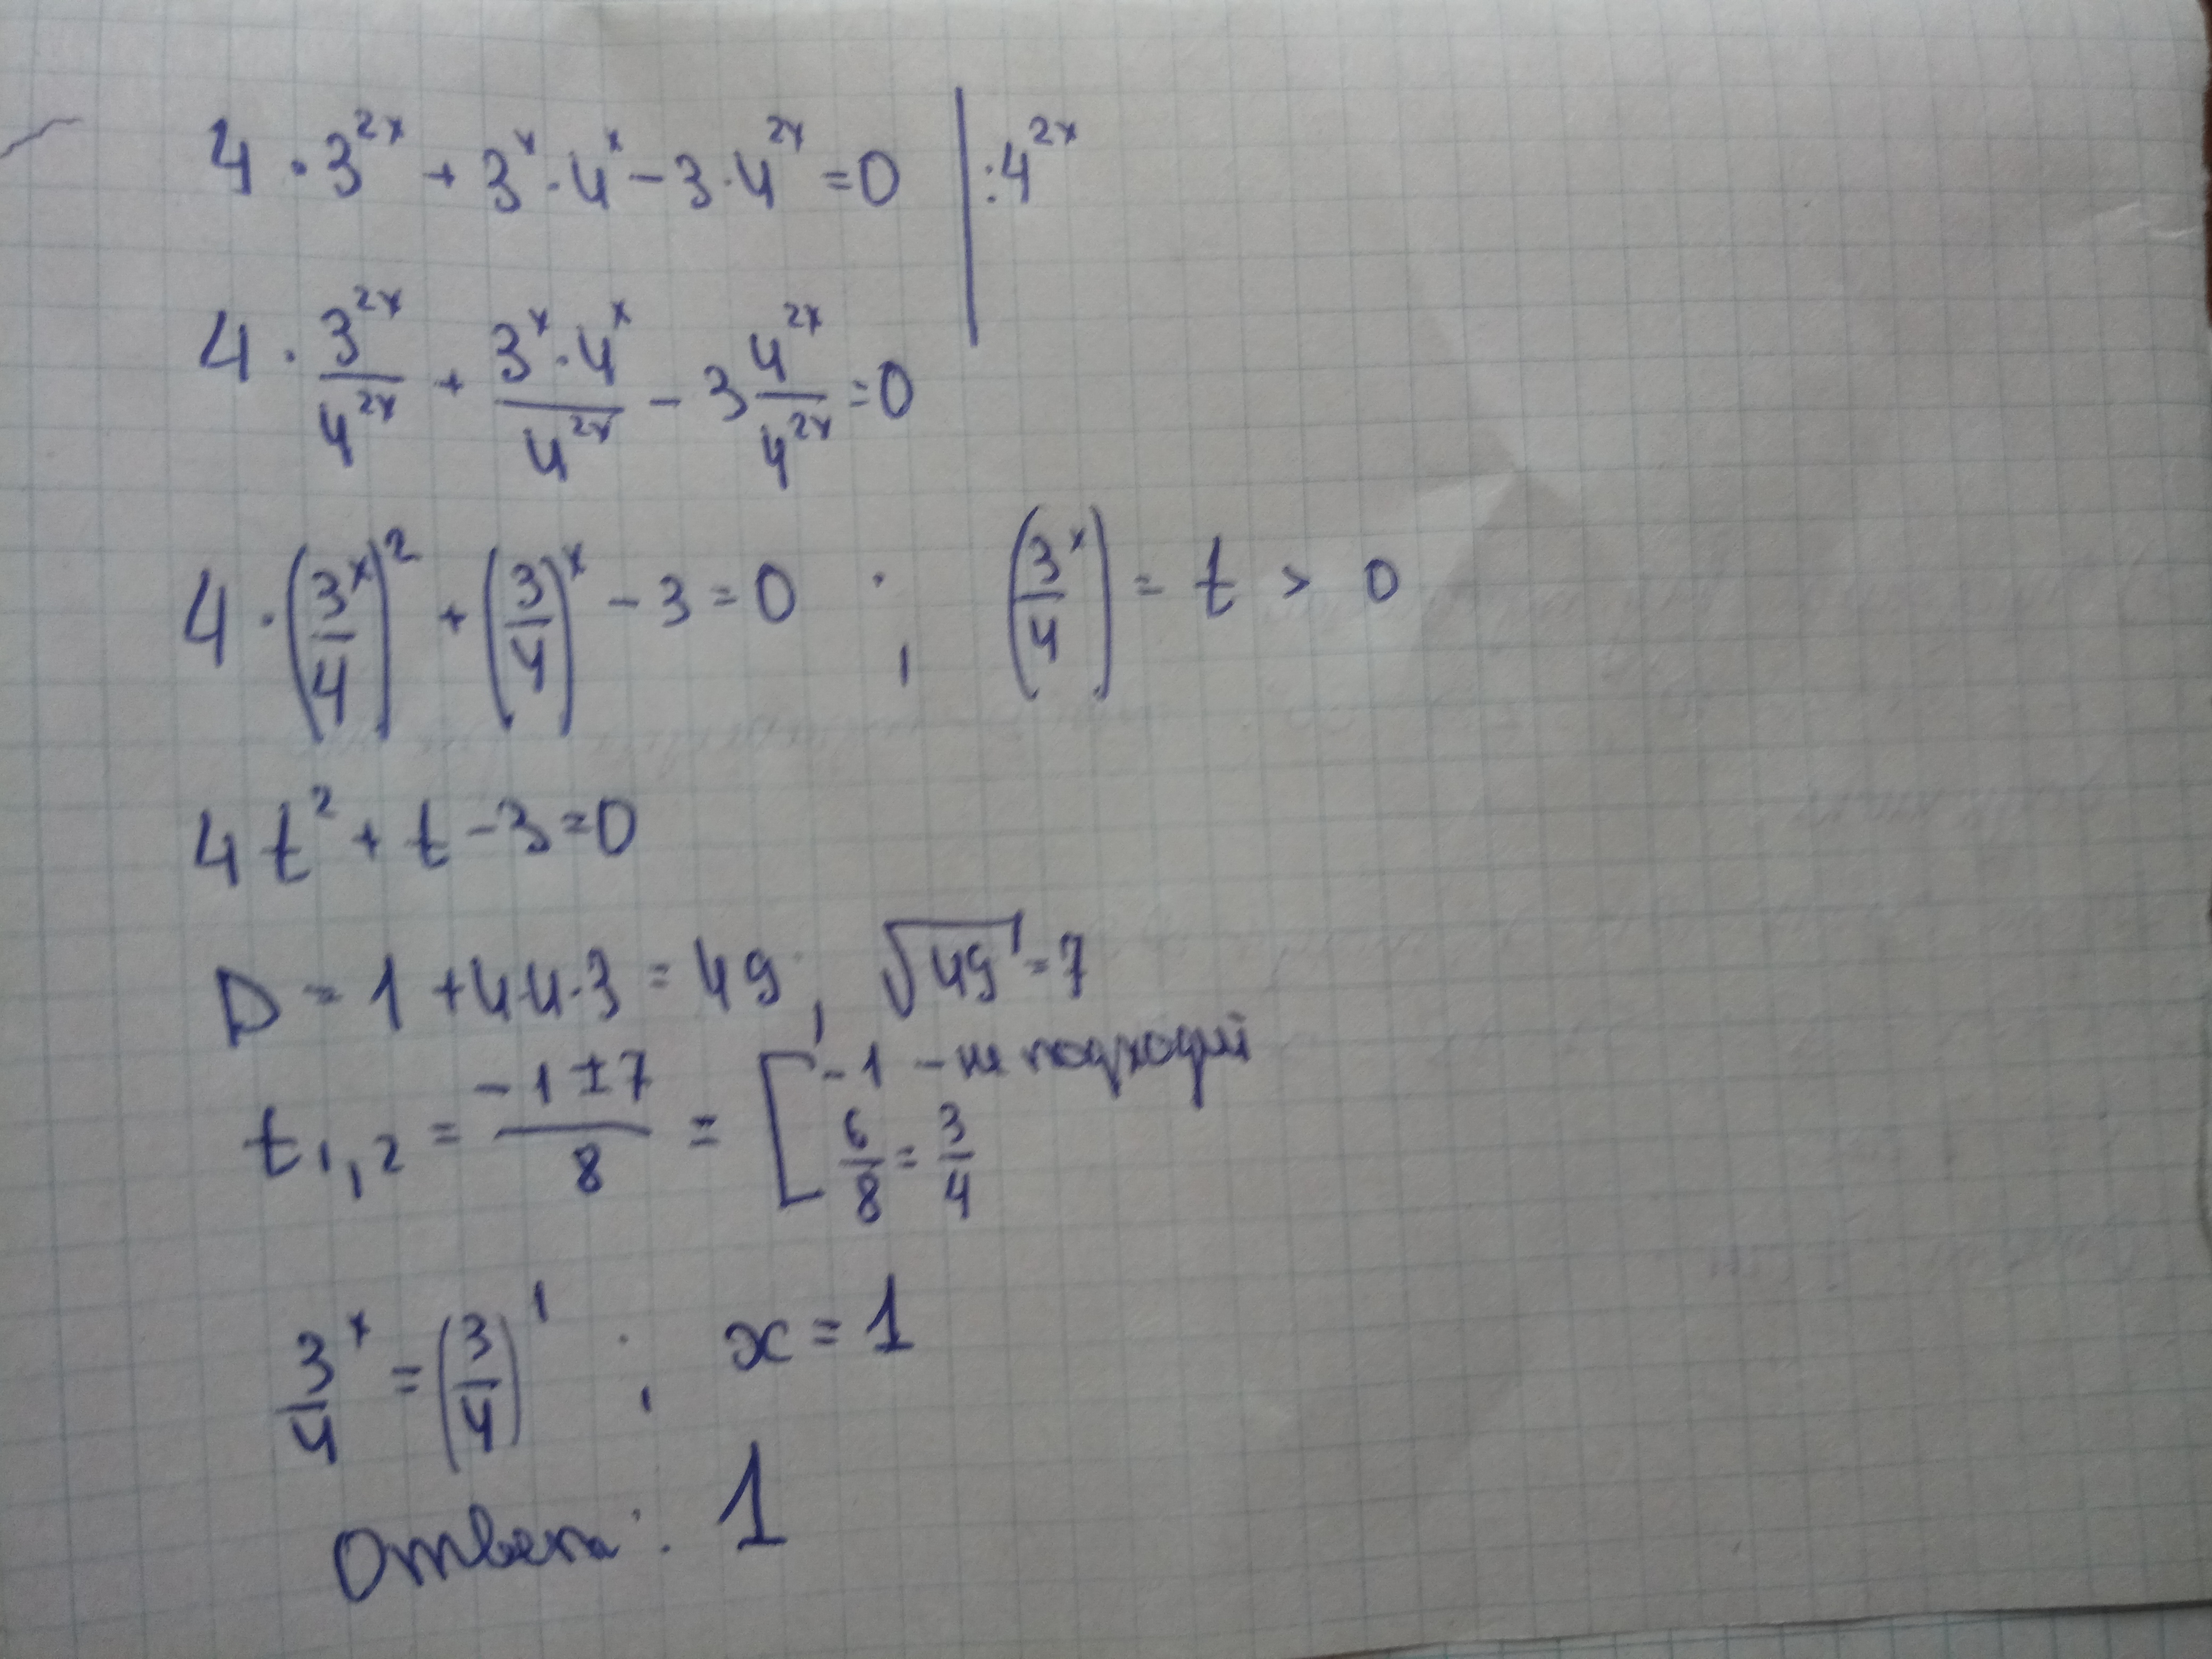 4 · 3^{2x} + 3^x · 4^x − 3 · 4^{2x} = 0 | : 4^{2x}
4 · \frac{3^{2x}}{4^{2x}} + \frac{3^x · 4^x}{4^{2x}} − 3 \frac{4^{2x}}{4^{2x}} = 0
4 · (\frac{3^x}{4})^2 + (\frac{3}{4})^x − 3 = 0 ; (\frac{3^x}{4}) = t > 0
4t^2 + t − 3 = 0
D = 1 + 4·4·3 = 49, √49 = 7
t_{1,2} = \frac{−1 ± 7}{8} = [ −1 − не подходит
\frac{6}{8} = \frac{3}{4}
\frac{3^x}{4} = (\frac{3}{4})^1 ; x = 1
Ответ: 1